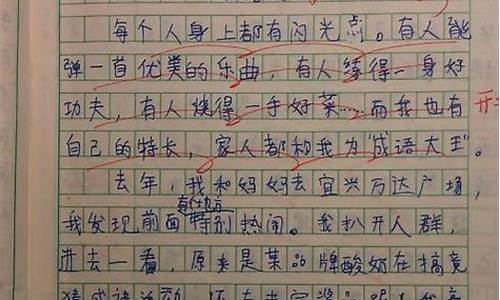 每个人身上都有闪光点。有人能
弹一首优美的乐曲，有人练得一身好
功夫，有人烧得一手好菜……而我也有 开
自己的特长，家人都和我为“成语大王”。
去年，我和妈妈去宜兴万达广场，
我发现前面特别热闹。我扒开人群，
进去一看，原来是某品牌酸奶在搞竞
猜成语活动